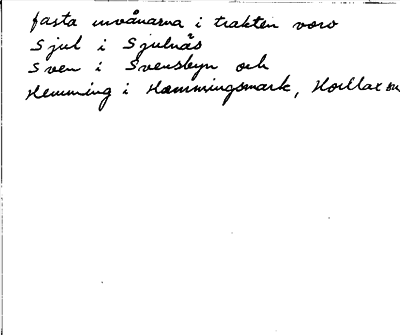 fasta invånarna i trakten voro
Sjul i Sjulnäs
Sven i Svensbyn och
Hemming i Hemmingsmark, Hortlax sn